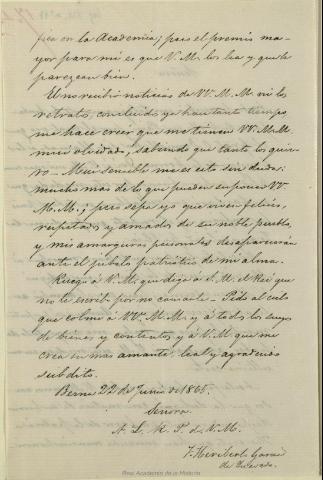 en la Academia; pues el premio ma-
yor para mi es que V. M. los lea y que le
parezcan bien.
El no recibir noticias de VV. M. M. ni los
retratos, concluidos ya hace tanto tiempo,
me hace creer que me tienen VV. M. M.
mui olvidado, sabiendo que tanto los quie-
ro. – Mui sensible me es esto sin duda:
mucho mas de lo que pueden suponer VV.
M. M.; pero sepa yo que viven felices,
respetados y amados de su noble pueblo,
y mis amarguras personales desaparecerán
ante el júbilo patriótico de mi alma.
Ruego á V. M. que diga á S. M. el Rei que
no le escribí por no cansarle – Pido al cielo
que colme á VV. M. M. y á todos los suyos
de bienes y contentos y á V. M. que me
crea su mas amante, leal y agradecido
subdito.
Berna 22 de Junio de
Señora
A. L. R. P. de V. M.
J. Heriberto Garcia
de Quevedo.
Real Academia de la Historia